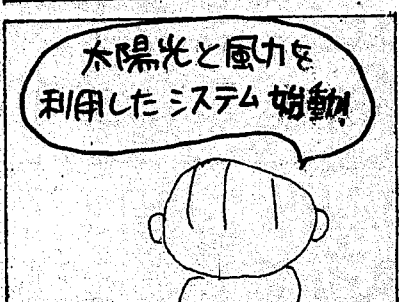 太陽光と風力を
利用したシステム始動!